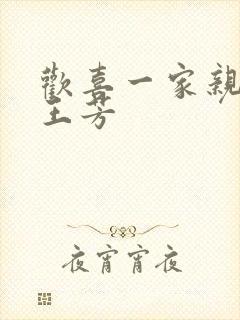 歡喜一家親
王芳
夜宵宵夜